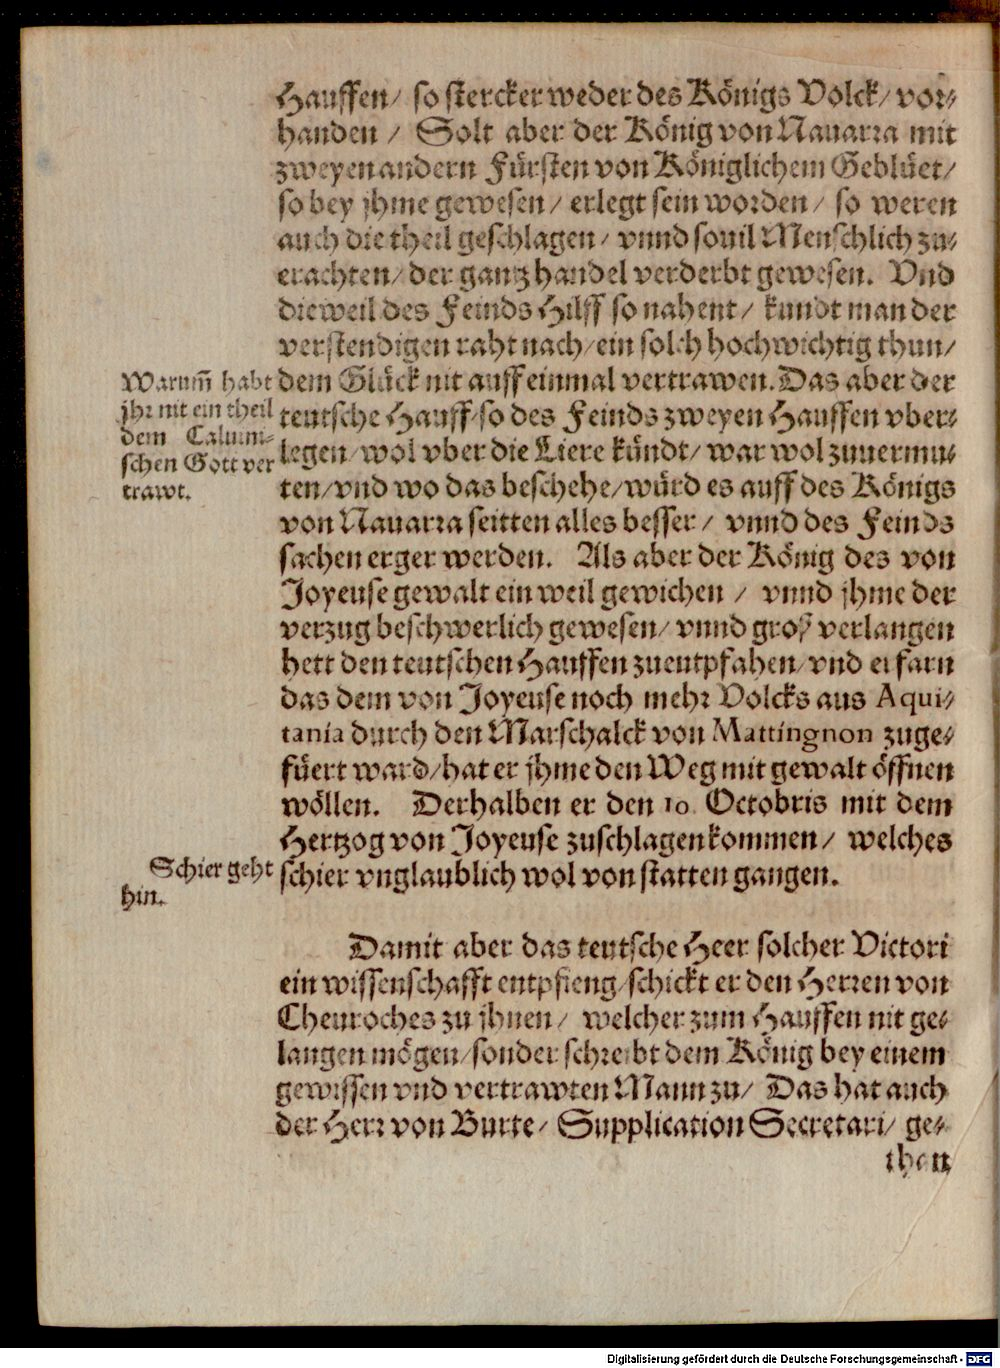 Hauffen/ so stercker weder des Königs Volck/ vor-
handen / Solt aber der König von Nauarra mit
zweyen andern Fürsten von Königlichem Geblüet/
so bey jhme gewesen / erlegt sein worden / so weren
auch die theil geschlagen / vnnd souil Menschlich zu-
erachten/ der gantz handel verderbt gewesen. Vnd
dieweil des Feinds Hilff so nahent / kundt man der
verstendigen raht nach/ ein solch hochwichtig thun/
dem Glück nit auff einmal vertrawen. Das aber der
teutsche Hauff/ so des Feinds zweyen Hauffen vber-
legen/ wol vber die Liere kündt/ war wol zuuermu-
ten/ vnd wo das beschehe/ würd es auff des Königs
von Nauarra seitten alles besser / vnnd des Feinds
sachen erger werden. Als aber der König des von
Joyeuse gewalt ein weil gewichen / vnnd jhme der
verzug beschwerlich gewesen/ vnnd groß verlangen
hett den teutschen Hauffen zuentpfahen/ vnd erfarn
das dem von Joyeuse noch mehr Volcks aus Aqui-
tania durch den Marschalck von Mattingnon zuge-
füert ward/ hat er jhme den Weg mit gewalt öffnen
wöllen. Derhalben er den 10. Octobris mit dem
Hertzog von Joyeuse zuschlagen kommen / welches
schier vnglaublich wol von statten gangen.
Warum̃ habt
jhr nit ein theil
dem Caluini-
schen Gott ver
trawt.
Schier geht
hin.
Damit aber das teutsche Heer solcher Victori
ein wissenschafft entpfieng/ schickt er den Herren von
Cheuroches zu jhnen / welcher zum Hauffen nit ge-
langen mögen/ sonder schreibt dem König bey einem
gewissen vnd vertrawten Mann zu/ Das hat auch
der Herr von Burte/ Supplication Secretari/ ge-
then
Digitalisierung gefördert durch die Deutsche Forschungsgemeinschaft - DFG